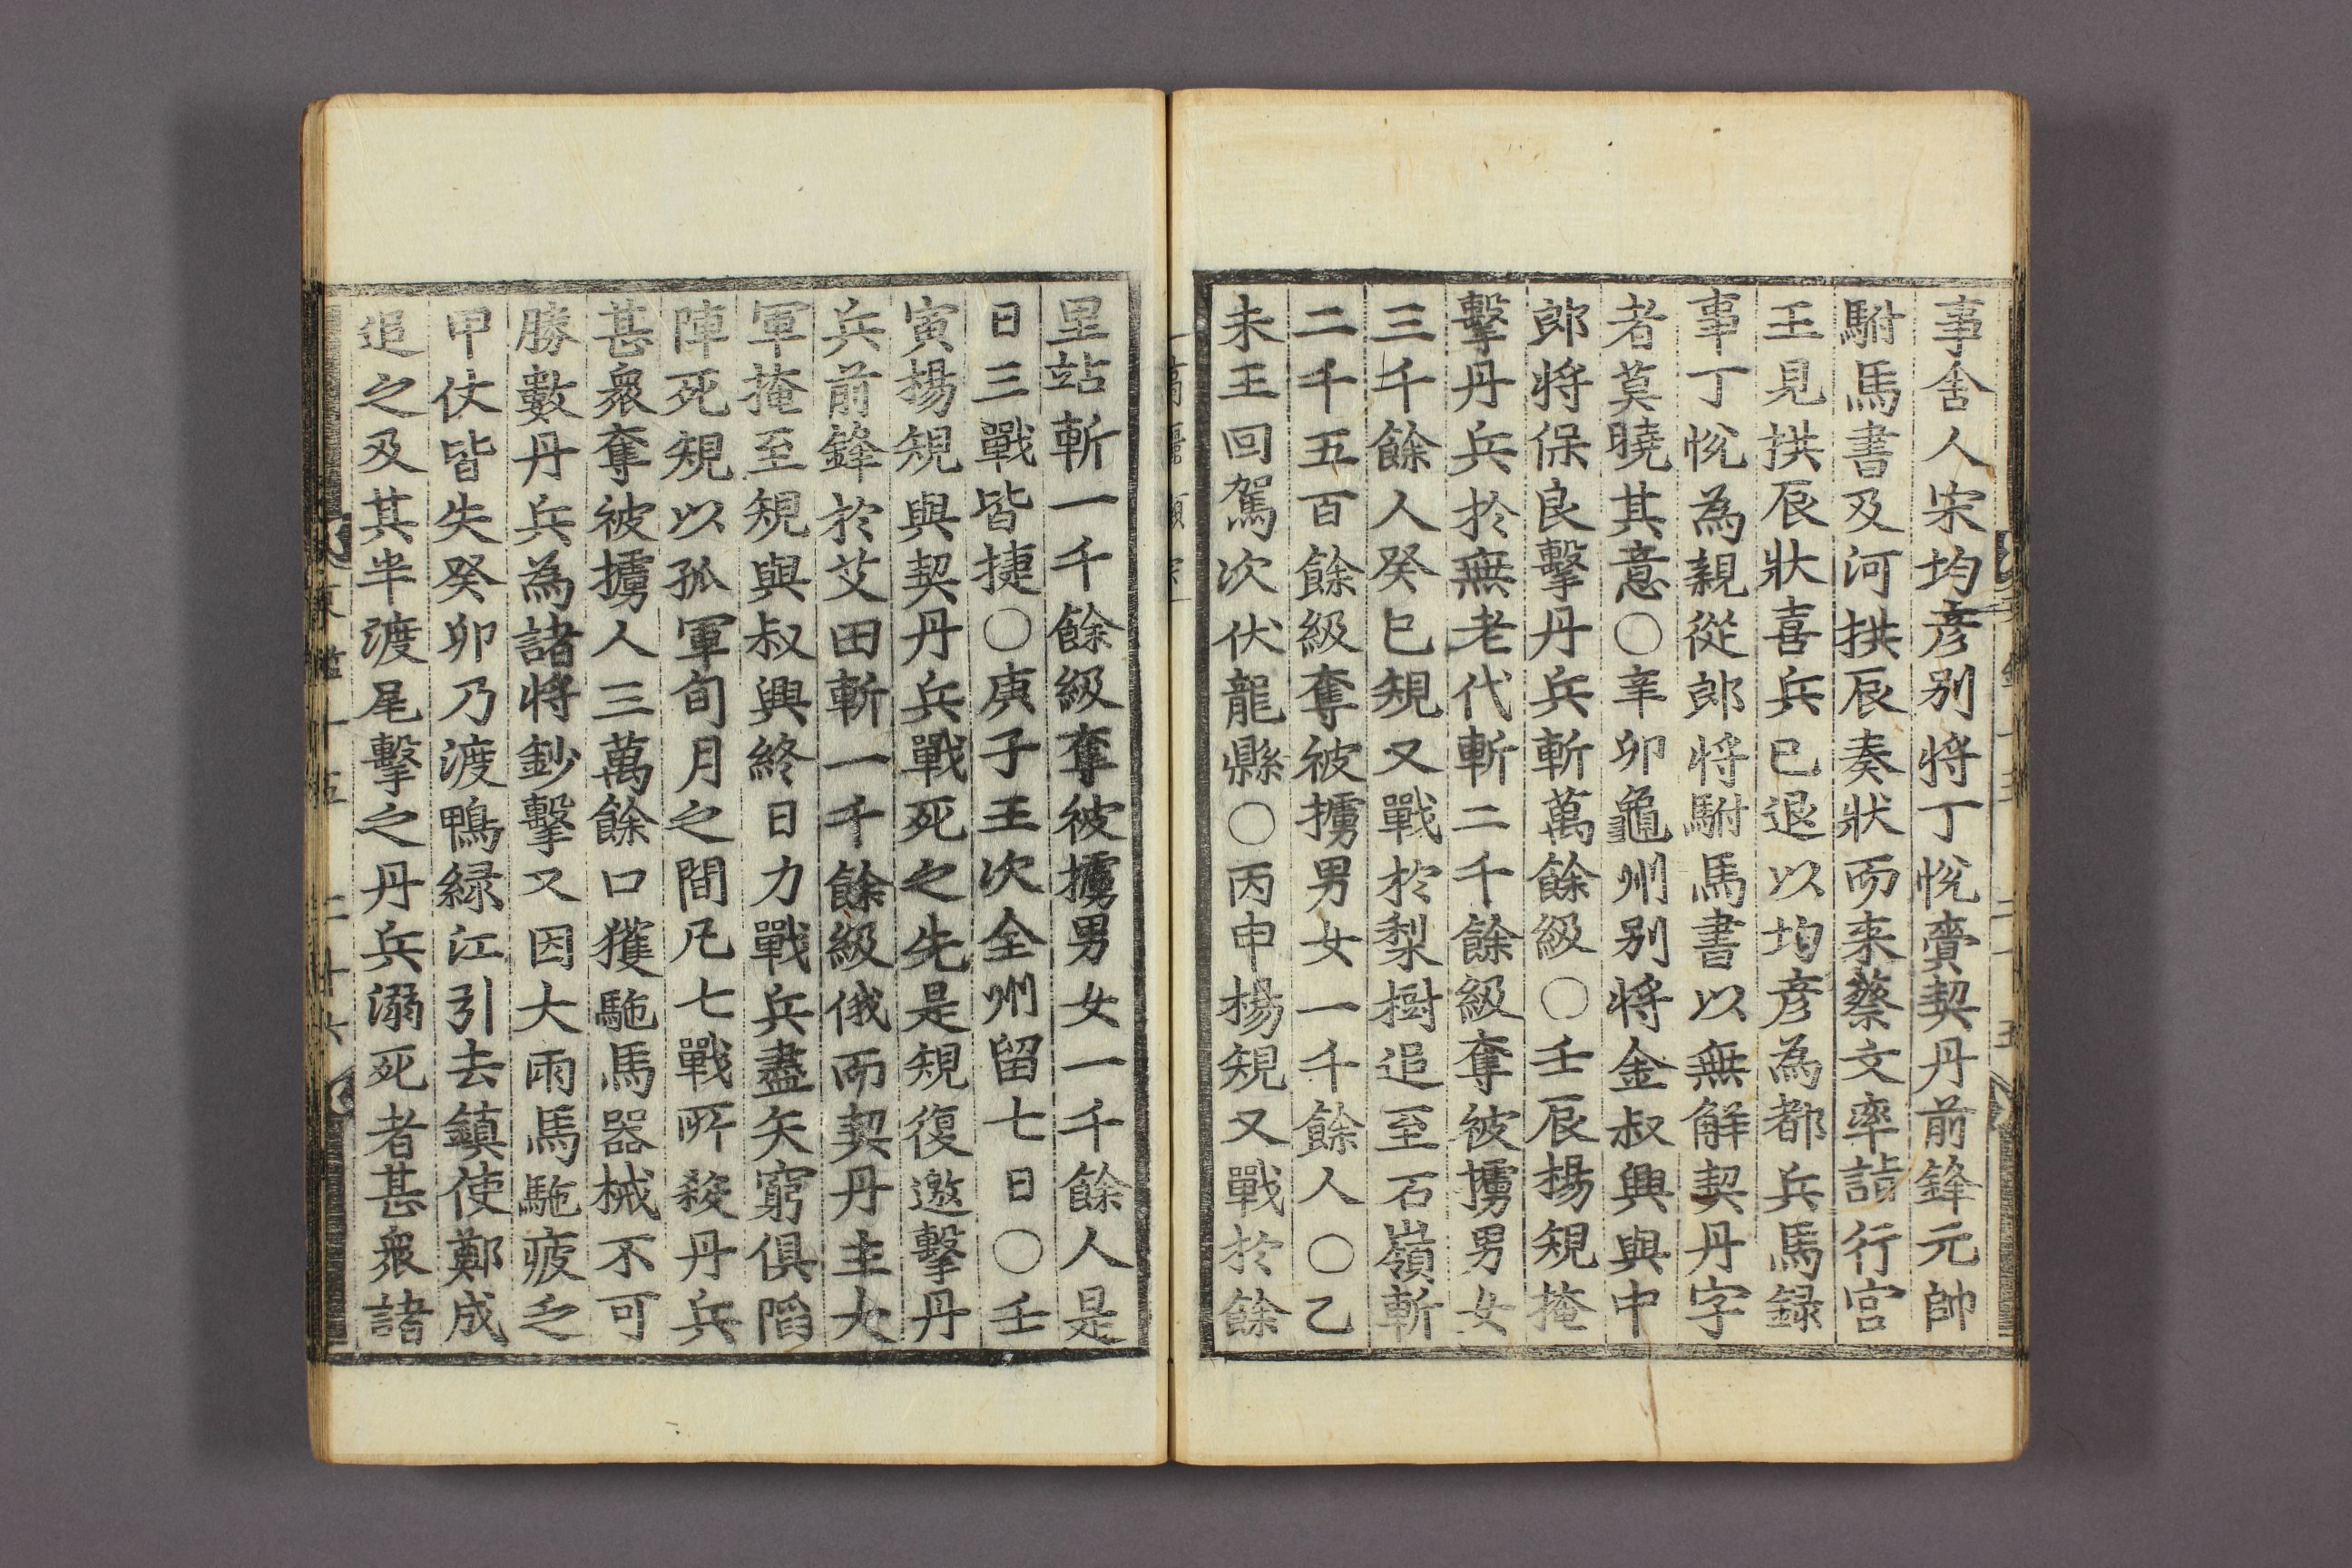 事舍人宋均彦別将丁恱賷契丹前鋒元帥
駙馬書及河拱辰奏狀而来蔡文率詣行宮
王見拱辰狀喜兵已退以均彦為都兵馬録
事丁恱為親從郎将駙馬書以無解契丹字
者莫曉其意○辛卯龜州別将金叔興與中
郎将保良擊丹兵斬萬餘級○壬辰楊䂓掩
擊丹兵於無老代斬二千餘級奪被擄男女
三千餘人癸巳䂓又戰於梨樹追至石嶺斬
二千五百餘級奪被擄男女一千餘人○乙
未王回駕次伏龍縣○丙申楊䂓又戰於餘
里站斬一千餘級奪被擄男女一千餘人是
日三戰皆捷○庚子王次全州留七日○壬
寅楊䂓與契丹兵戰死之先是䂓復邀擊丹
兵前鋒於艾田斬一千餘級俄而契丹主大
軍掩至䂓與叔興終日力戰兵盡矢窮俱陷
陣死䂓以孤軍旬月之間凡七戰所殺丹兵
甚衆奪被擄人三萬餘口獲駞馬器械不可
勝數丹兵為諸将鈔擊又因大雨馬駞疲乏
甲仗皆失癸卯乃渡鴨緑江引去鎮使鄭成
追之及其半渡尾擊之丹兵溺死者甚衆諸